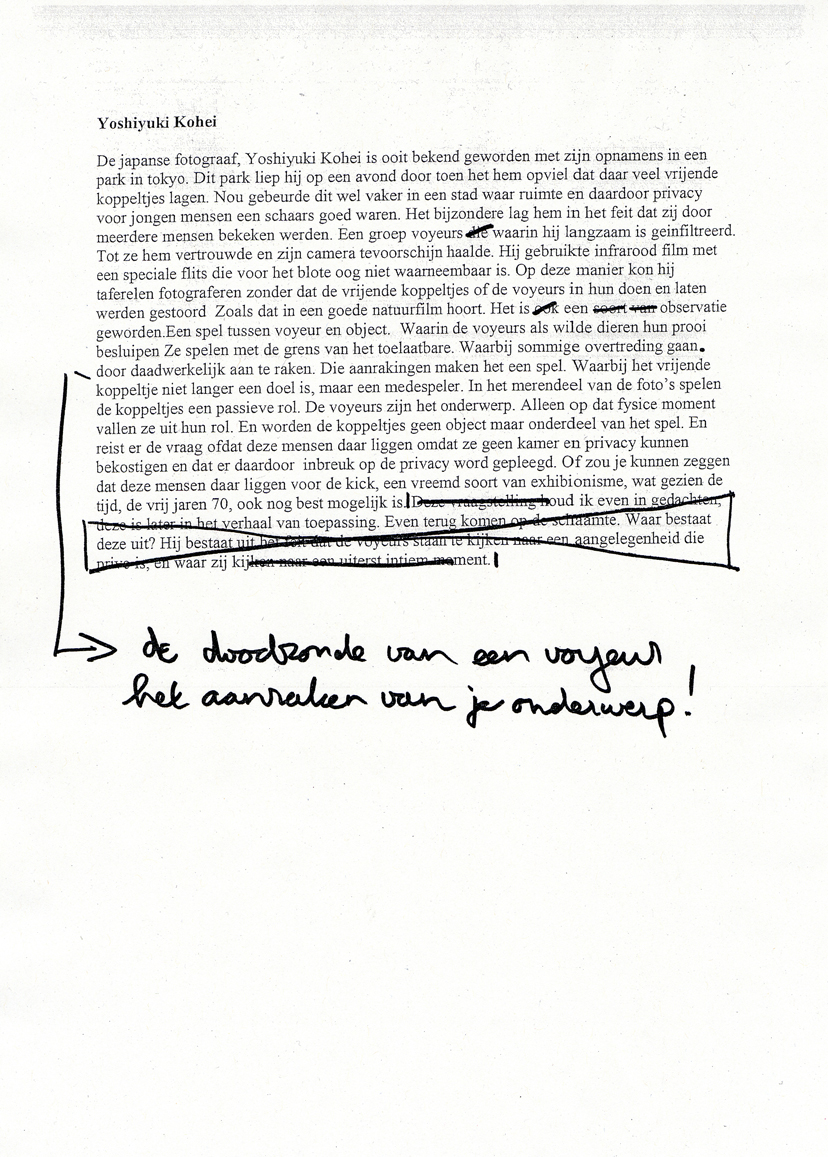 Yoshiyuki Kohei
De japanse fotograaf, Yoshiyuki Kohei is ooit bekend geworden met zijn opnamens in een
park in tokyo. Dit park liep hij op een avond door toen het hem opviel dat daar veel vrijende
koppeltjes lagen. Nou gebeurde dit wel vaker in een stad waar ruimte en daardoor privacy
voor jongen mensen een schaars goed waren. Het bijzondere lag hem in het feit dat zij door
meerdere mensen bekeken werden. Een groep voyeurs die waarin hij langzaam is geinfiltreerd.
Tot ze hem vertrouwde en zijn camera tevoorschijn haalde. Hij gebruikte infrarood film met
een speciale flits die voor het blote oog niet waarneembaar is. Op deze manier kon hij
taferelen fotograferen zonder dat de vrijende koppeltjes of de voyeurs in hun doen en laten
werden gestoord  Zoals dat in een goede natuurfilm hoort. Het is ook een soort van observatie
geworden.Een spel tussen voyeur en object.  Waarin de voyeurs als wilde dieren hun prooi
besluipen Ze spelen met de grens van het toelaatbare. Waarbij sommige overtreding gaan.
door daadwerkelijk aan te raken. Die aanrakingen maken het een spel. Waarbij het vrijende
koppeltje niet langer een doel is, maar een medespeler. In het merendeel van de foto's spelen
de koppeltjes een passieve rol. De voyeurs zijn het onderwerp. Alleen op dat fysice moment
vallen ze uit hun rol. En worden de koppeltjes geen object maar onderdeel van het spel. En
reist er de vraag ofdat deze mensen daar liggen omdat ze geen kamer en privacy kunnen
bekostigen en dat er daardoor  inbreuk op de privacy word gepleegd. Of zou je kunnen zeggen
dat deze mensen daar liggen voor de kick, een vreemd soort van exhibionisme, wat gezien de
tijd, de vrij jaren 70, ook nog best mogelijk is. Deze vraagstelling houd ik even in gedachten,
deze is later in het verhaal van toepassing. Even terug komen op de schaamte. Waar bestaat
deze uit? Hij bestaat uit het feit dat de voyeurs staan te kijken naar een aangelegenheid die
prive is, en waar zij kijken naar een uiterst intiem moment.
de doodzonde van een voyeur
het aanraken van je onderwerp!